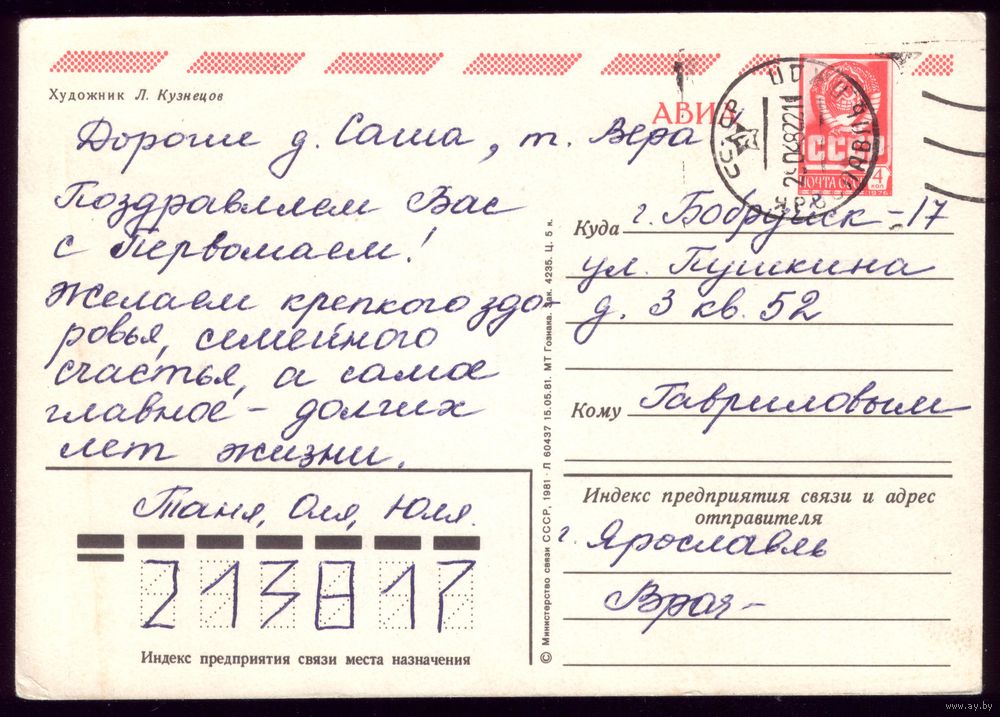 Художник Л. Кузнецов
АВИА
Дорогие д. Саша, т. Вера
Поздравляем Вас
с Первомаем!
Желаем крепкого здо-
ровья, семейного
счастья, а самое
главное – долгих
лет жизни.
Таня, Оля, Юля.
213817
Индекс предприятия связи места назначения
© Министерство связи СССР, 1981 · Л 60437 15.05.81. МТ Гознака. Зак. 4235. Ц. 5 к.
СССР
ПОЧТА СССР
4 коп
1976
Куда г. Бобруйск – 17
ул. Пушкина
д. 3 кв. 52
Кому Гавриловым
Индекс предприятия связи и адрес
отправителя
г. Ярославль
www.ay.by